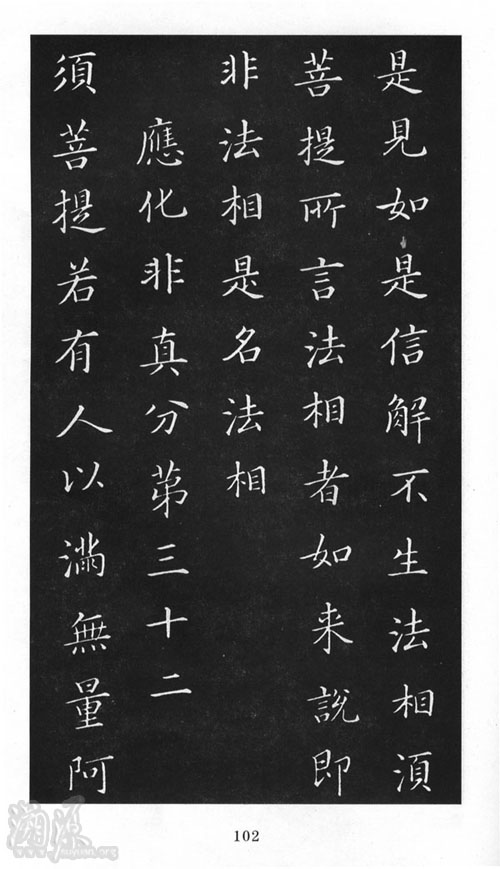 是見如是信解不生法相須
菩提所言法相者如来說即
非法相是名法相
應化非真分苐三十二
須菩提若有人以滿無量阿
102